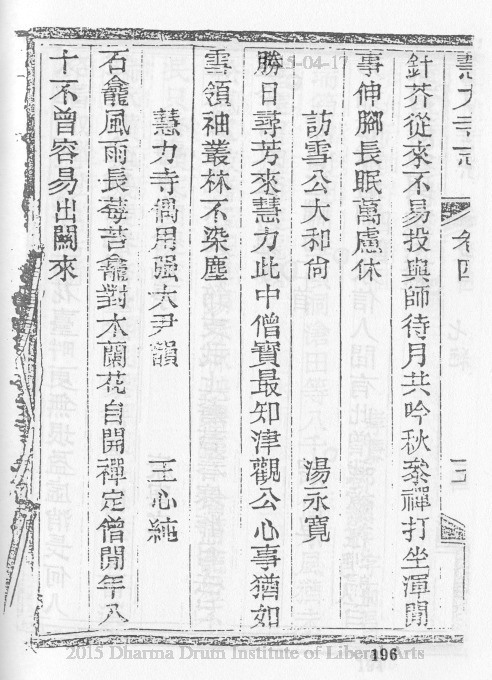 慧力寺志 卷四
針芥從來不易投與師待月共吟秋叅禪打坐渾閒
事伸脚長眠萬慮休
訪雪公大和尙 湯永寬
勝日尋芳來慧力此中僧寳最知津觀公心事猶如
雪領袖叢林不染塵
慧力寺偶用强大尹韻 王心純
石龕風雨長莓苔龕對木蘭花自開禪定僧閒年八
十不曾容易出關來
196
2015 Dharma Drum Institute of Liberal Arts